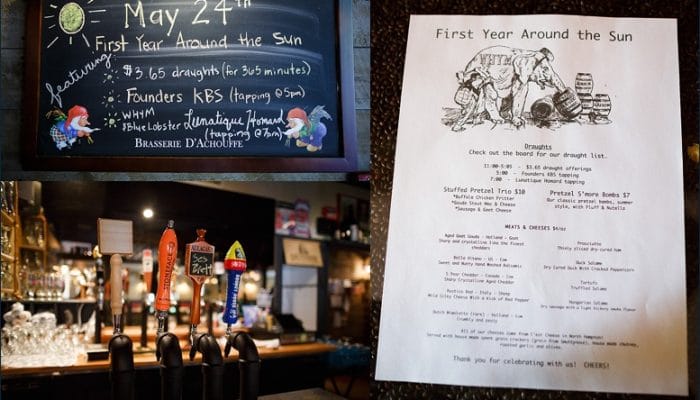 May 24th
First Year Around the Sun
featuring:
$3.65 draughts (for 365 minutes)
Founders KBS (tapping @ 5pm)
WHYM
& Blue Lobster Lunatique Homard
(tapping @ 7pm)
BRASSERIE D'ACHOUFFE
First Year Around the Sun
WHYM
Draughts
Check out the board for our draught list.
11:00-5:05 - $3.65 draught offerings
5:00 - Founders KBS tapping
7:00 - Lunatique Homard tapping
Stuffed Pretzel Trio $10
*Buffalo Chicken Fritter
*Gouda Stout Mac & Cheese
*Sausage & Goat Cheese
Pretzel S'more Bombs $7
Our classic pretzel bombs, summer
style, with Fluff & Nutella
MEATS & CHEESES
Aged Goat Gouda - Holland - Goat
Sharp and crystalline like the finest
cheddars
Cow
Sweet and Nutty Hand Washed Balsamic
5 Year Cheddar - Canada - Cow
Sharp Crystalline Aged Cheddar
Rustico Red - Italy - Sheep
Wild Silky Cheese With a Kick of Red Pepper
Holland - Cow
Crumbly and zesty
Prosciutto
Thinly sliced dry-cured ham
Duck Salame
Dry Cured Duck With Cracked Peppercorn
Tartufo
Truffled Salame
Hungarian Salame
Dry sausage with a light hickory smoke flavor
All of our cheeses come from C'est Cheese in North Hampton!
Served with house made spent grain crackers (grain from Smuttynose), house made chutney,
roasted garlic and olives.
Thank you for celebrating with us! CHEERS!